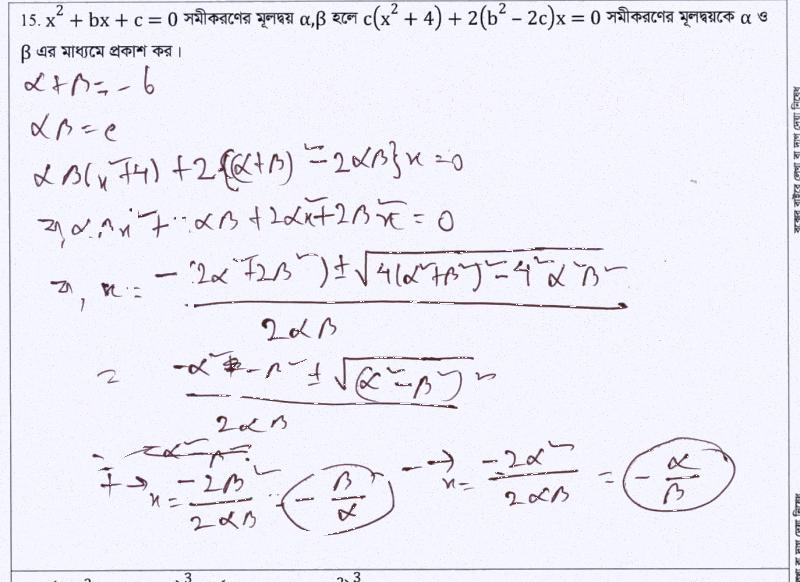 15. x² + bx + c = 0 সমীকরণের মূলদ্বয় α,β হলে c(x² + 4) + 2(b² − 2c)x = 0 সমীকরণের মূলদ্বয়কে α ও
β এর মাধ্যমে প্রকাশ কর।
α + β = - b
αβ = c
αβ(x²+4) + 2{(α+β)² - 2αβ}x = 0
αβ + 2α²x + 2β²x = 0
বা, x = -(2α²+2β²) ± √4(α²+β²)² - 4²α²β² / 2αβ
= -α² - β² ± √(α²-β²)² / 2αβ
+ → x = -2β² / 2αβ = - β/α - → x = -2α² / 2αβ = - α/β